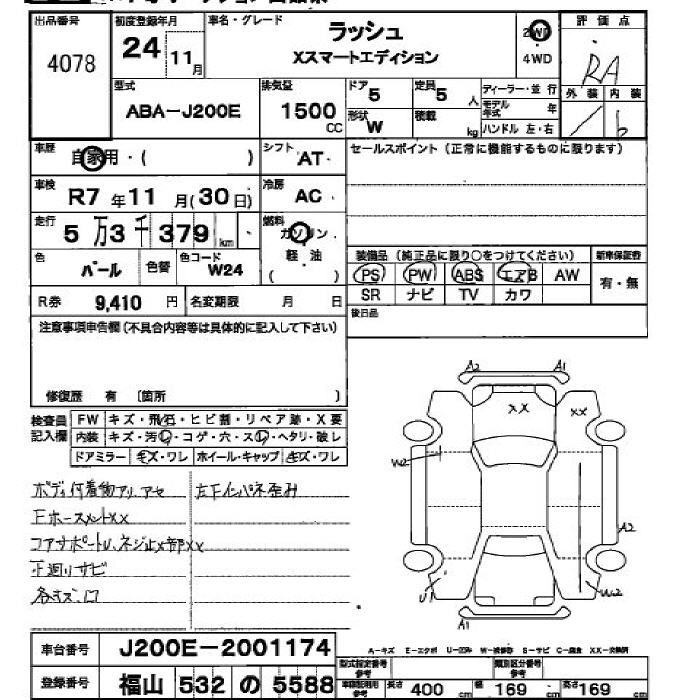 出品番号 初度登録年月 車名・グレード 評価点
4078 24 11月 ラッシュ 2WD RA
Xスマートエディション 4WD
外装 内装
型式 排気量 ドア 5 定員 5人 ディーラー・並行
ABA-J200E 1500 CC 形状 W 積載 kg モデル年式 年
ハンドル 左・右
車歴 自家用・( ) シフト AT セールスポイント (正常に機能するものに限ります)
車検 R7年11月(30日) 冷房 AC
走行 5万3千379km 燃料 ガソリン
軽・油
( )
色 パール 色替 色コード W24 装備品 (純正品に限り○をつけてください) 新車保証書
PS PW ABS エアB AW 有・無
R券 9,410円 名変期限 月 日 SR ナビ TV カワ
注意事項申告欄(不具合内容等は具体的に記入して下さい) 後日品
修復歴 有 〔箇所 〕
検査員 FW キズ・飛石・ヒビ割・リペア跡・X要
記入欄 内装 キズ・汚レ・コゲ・穴・スレ・ヘタリ・破レ
ドアミラー キズ・ワレ ホイール・キャップ キズ・ワレ
A2 A1
XX XX
W2
A2
U1 W2
A1
ボディ付着物アリ.アセ 左下インパネ歪み
FホースメントXX
コアサポートU.ネジ止メ部XX
下廻りサビ
各キズ.凹
車台番号 J200E-2001174
A-キズ E-エクボ U-凹み W-補修跡 S-サビ C-腐食 XX-交換済
型式指定番号 参考 類別区分番号 参考
登録番号 福山 532 の 5588 車検証利用 参考 長さ 400 cm 幅 169 cm 高さ 169 cm